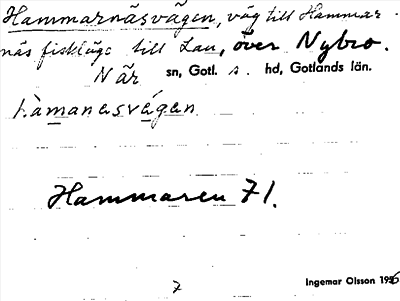 Hammarnäsvägen, väg till Hammar-
näs fiskläge till Lau, över Nybro.
När sn, Gotl. s. hd, Gotlands län.
hàmanesvégen
Hammaren 71.
7
Ingemar Olsson 1956